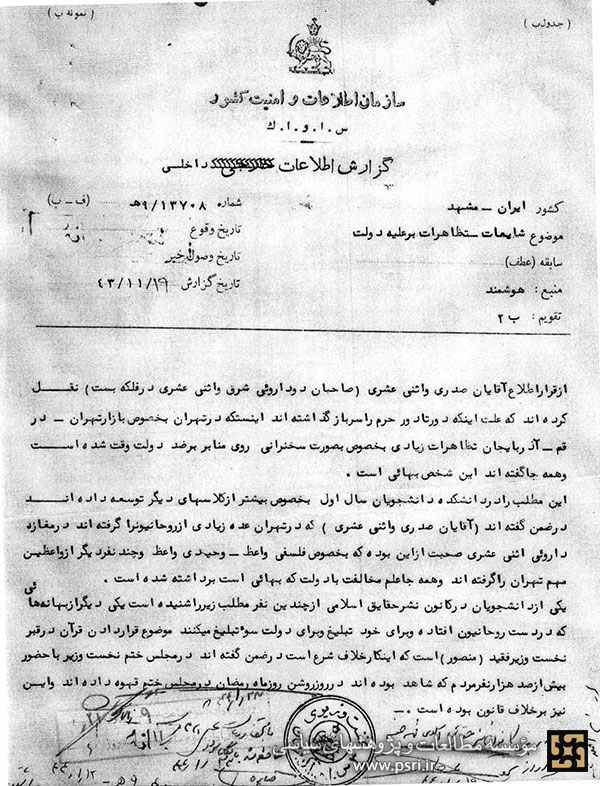 ( جدول ب )
( نمونه ب )
سازمان اطلاعات و امنیت کشور
س . ا . و . ا . ك
گزارش اطلاعات داخلی
کشور ایران - مشهد
شماره ۹/۱۳۷۰۸هـ (ف - ب)
موضوع شایعات - تظاهرات برعلیه دولت
تاریخ وقوع
سابقه (عطف)
تاریخ وصول خبر
منبع : هوشمند
تاریخ گزارش ۴۳/۱۱/۱۹
تقویم : ب ۲
از قرار اطلاع آقایان صدری واثنی عشری ( صاحبان دو داروئی شرق واثنی عشری در فلکه بست ) نقل
کرده اند که علت اینکه دورتادور حرم را سرباز گذاشته اند اینستکه در تهران بخصوص بازار تهران - در
قم - آذربایجان تظاهرات زیادی بخصوص بصورت سخنرانی روی منابر برضد دولت وقت شده است
وهمه جا گفته اند این شخص بهائی است .
این مطلب را در دانشکده دانشجویان سال اول بخصوص بیشتر از کلاسهای دیگر توسعه داده اند
در ضمن گفته اند ( آقایان صدری واثنی عشری ) که در تهران عده زیادی از روحانیونرا گرفته اند در مغازه
داروئی اثنی عشری صحبت از این بوده که بخصوص فلسفی واعظ - وحیدی واعظ وچند نفر دیگر از واعظین
مهم تهران را گرفته اند وهمه جا علم مخالفت با دولت که بهائی است برداشته شده است .
یکی از دانشجویان در کانون نشر حقایق اسلامی از چندین نفر مطلب زیر را شنیده است یکی دیگر از بهانه هائی
که در دست روحانیون افتاده وبرای خود تبلیغ وبرای دولت سوء تبلیغ میکنند موضوع قراردادن قرآن در قبر
نخست وزیر فقید (منصور) است که اینکار خلاف شرع است در ضمن گفته اند در مجلس ختم نخست وزیر با حضور
بیش از صد هزار نفر مردم که شاهد بوده اند در روز روشن روز ماه رمضان در مجلس ختم قهوه داده اند واین
نیز برخلاف قانون بوده است . -
مؤسسه مطالعات و پژوهشهای سیاسی
www.psri.ir